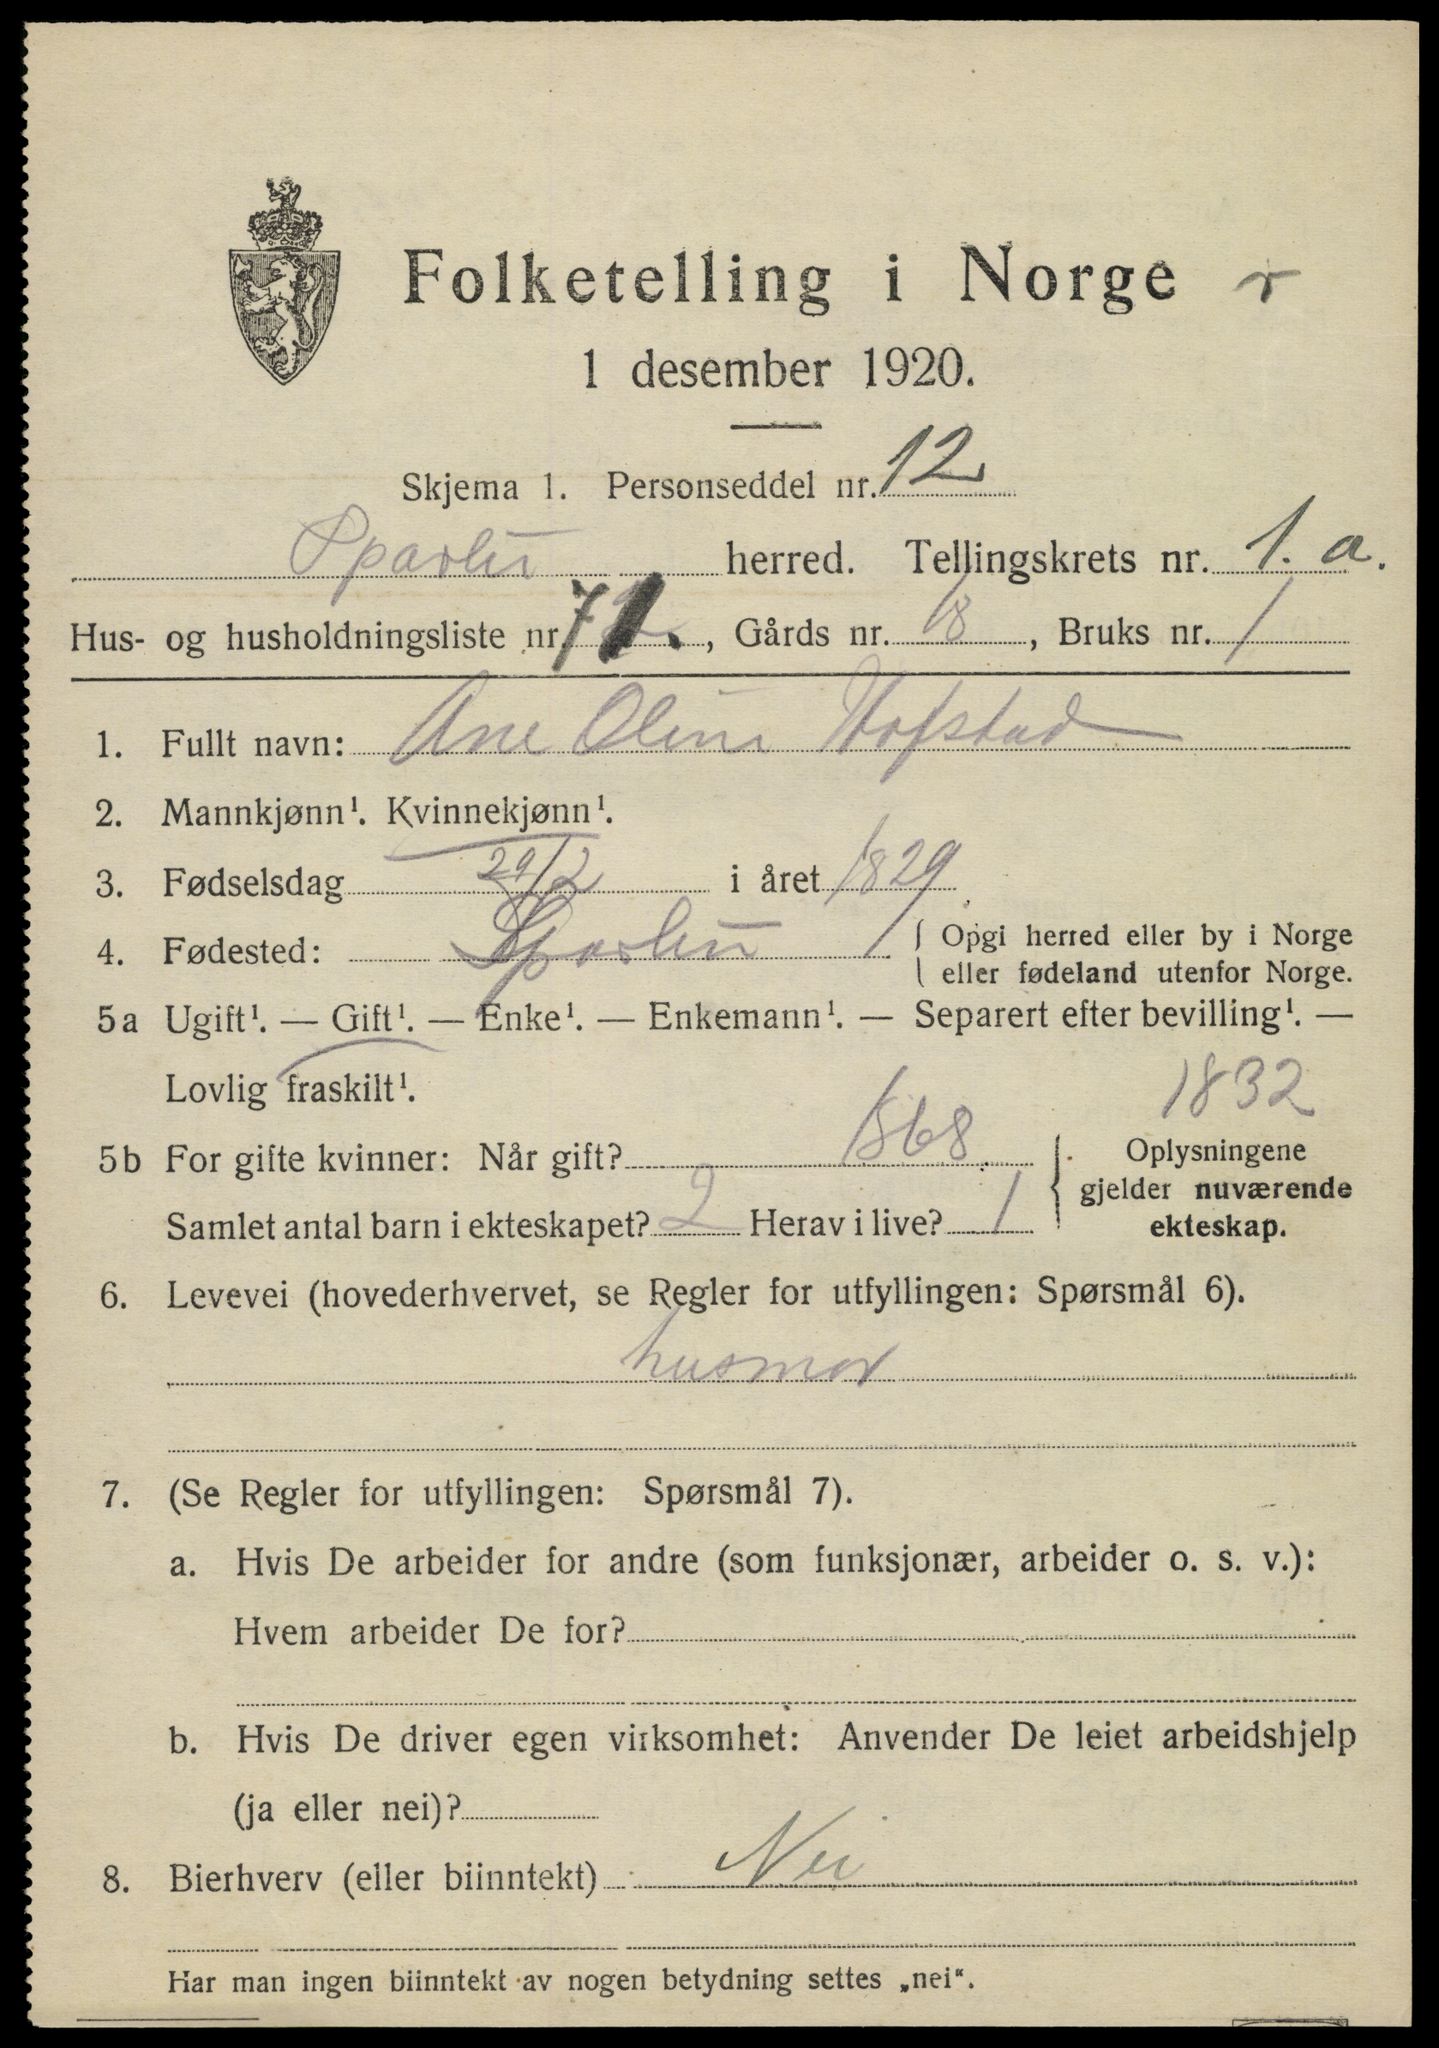 Folketelling i Norge
1 desember 1920.
Skjema 1. Personseddel nr. 12
Sparbu herred. Tellingskrets nr. 1. a.
Hus- og husholdningsliste nr. 71., Gårds nr. 18, Bruks nr. 1
1. Fullt navn: Ane Olina Hofstad
2. Mannkjønn¹. Kvinnekjønn¹.
3. Fødselsdag 29/2 i året 1829
4. Fødested: Sparbu { Opgi herred eller by i Norge
eller fødeland utenfor Norge.
5a Ugift¹. — Gift¹. — Enke¹. — Enkemann¹. — Separert efter bevilling¹. —
Lovlig fraskilt¹.
1832
5b For gifte kvinner: Når gift? 1868
Samlet antal barn i ekteskapet? 2 Herav i live? 1
{ Oplysningene
gjelder nuværende
ekteskap.
6. Levevei (hovederhvervet, se Regler for utfyllingen: Spørsmål 6).
husmor
7. (Se Regler for utfyllingen: Spørsmål 7).
a. Hvis De arbeider for andre (som funksjonær, arbeider o. s. v.):
Hvem arbeider De for?
b. Hvis De driver egen virksomhet: Anvender De leiet arbeidshjelp
(ja eller nei)?
8. Bierhverv (eller biinntekt) Nei
Har man ingen biinntekt av nogen betydning settes „nei“.